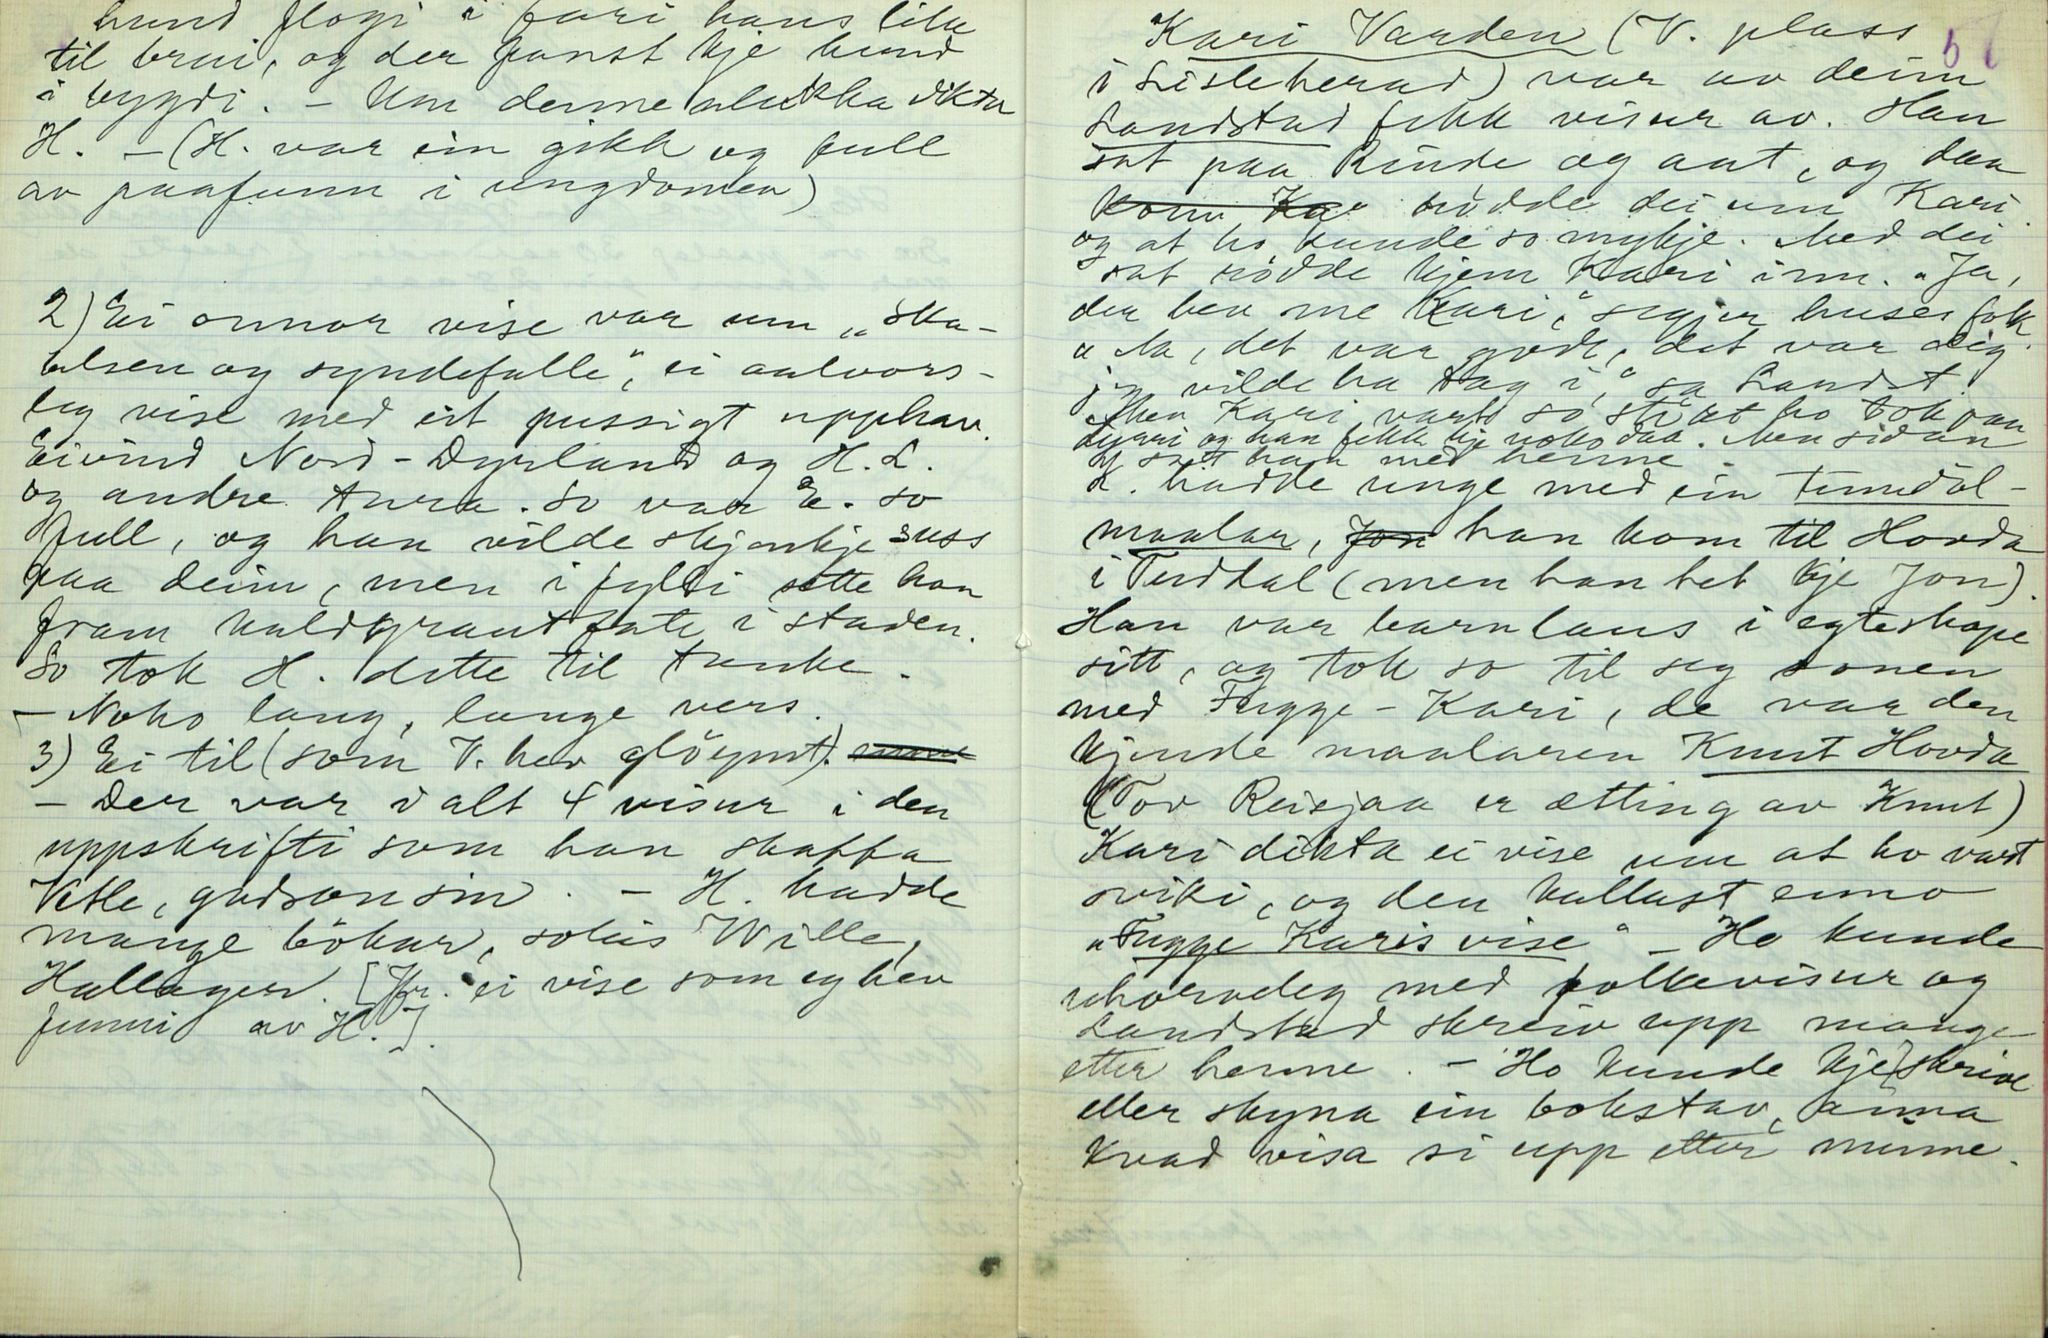 hund flogi i fari hans lika
til brui, og der fanst kje hund
i bygdi. – Um denne slukka dikta
H. – (H. var ein gikk og full
av paafunn i ungdomen)
2) Ei onnor vise var um „ska-
pelsen og syndefalle“, ei aalvors-
leg vise med eit pussigt upphav.
Eivind Nord-Dyrland og H. L.
og andre tura. So var E. so
full, og han vilde skjenkje suss
paa deim, men i fylli sette han
fram kaldgrautfate i staden.
So tok H. dette til tanke.
– Noko lang, lange vers.
3) Ei til (som V. hev glöymt).
– Der var i alt 4 visur i den
uppskrifti som han skaffa
Vetle, gudson sin. – H. hadde
mange bökar, soleis Wille,
Hallager. [Jfr. ei vise som eg hev
funni av H.].
57
Kari Varden (V. plass
i Lisleherad) var av deim
Landstad fekk visur av. Han
sat paa Rinde og aat, og daa
kom Ka rödde dei um Kari
og at ho kunde so mykje. Med dei
sat rödde kjem Kari inn. „Ja,
der hev me Kari,“ segjer husesfolk.
„Aa, det var godt, det var dig
jeg vilde ha tag i,“ sa Landst.
Men Kari vart so at ho tok
dynni og han fekk kje noko daa. Men sidan
sat han med henne.
L. hadde unge med ein Tinndöl-
maalar, Jon han kom til Hovda
i Tuddal (men han het kje Jon).
Han var barnlaus i egteskape
sitt, og tok so til seg sonen
med Fugge-Kari, de var den
kjende maalaren Knut Hovda
(Tov Reisjaa er ætting av Knut)
Kari dikta ei vise um at ho vart
sviki, og den kallast enno
„Fugge Karis vise“ – Ho kunde
uhorveleg med folkevisur og
Landstad skreiv upp mange
etter henne. – Ho kunde kje skrive
eller skyna ein bokstav, anna
kvad visa si upp etter minne.